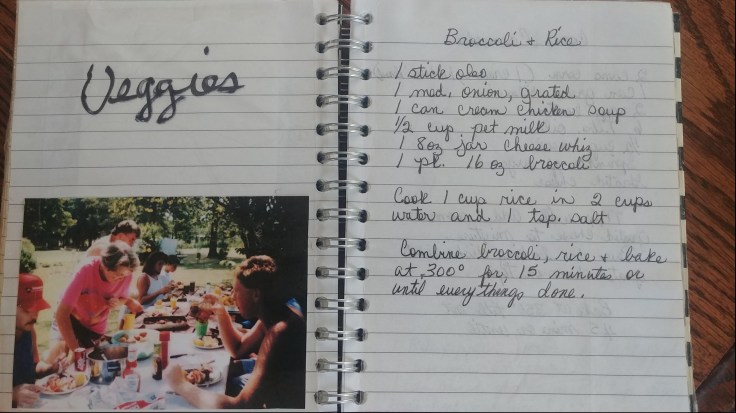 Veggies
Broccoli & Rice
1 stick oleo
1 med. onion, grated
1 can cream chicken soup
1/2 cup pet milk
1 8oz jar cheese whiz
1 pk. 16 oz broccoli
Cook 1 cup rice in 2 cups
water and 1 tsp. salt
Combine broccoli, rice & bake
at 300° for 15 minutes or
until everythings done.